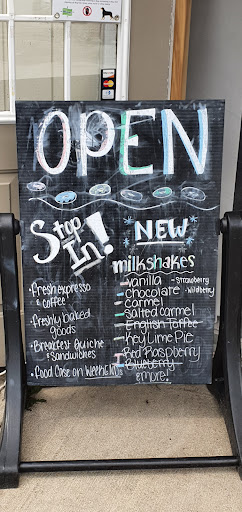 OPEN
Stop
In!
• Fresh expresso
& coffee
• Freshly baked
goods
• Breakfast Quiche
& Sandwiches
• Food Case on WEEKENDS
NEW
milkshakes
- Vanilla - Strawberry
- Chocolate - Wildberry
- Carmel
- Salted carmel
- English Toffee
- Key Lime Pie
- Red Raspberry
- Blueberry
& more!